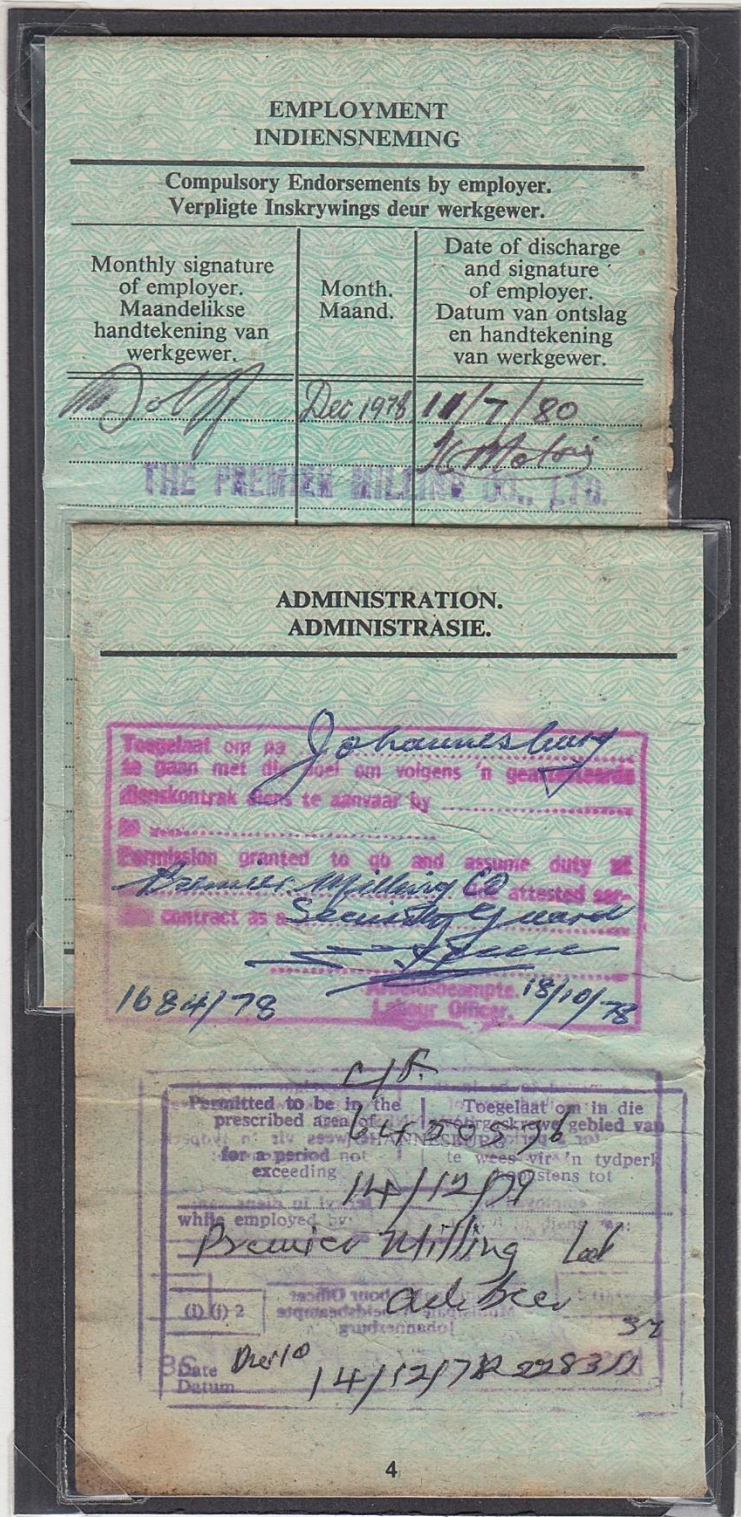 EMPLOYMENT
INDIENSNEMING
Compulsory Endorsements by employer.
Verpligte Inskrywings deur werkgewer.
Monthly signature
of employer.
Maandelikse
handtekening van
werkgewer.
Month.
Maand.
Date of discharge
and signature
of employer.
Datum van ontslag
en handtekening
van werkgewer.
Dec 1978
11/7/80
THE PREMIER MILLING CO., LTD.
ADMINISTRATION.
ADMINISTRASIE.
Toegelaat om na Johannesburg
te gaan met die doel om volgens 'n geattesteerde
dienskontrak diens te aanvaar by
Permission granted to go and assume duty at
Premier Milling CO attested ser-
contract as a Security Guard
Arbeidsbeampte. 18/10/78
Labour Officer.
1684/78
C/F.
Permitted to be in the
prescribed area of
JOHANNESBURG
for a period not
exceeding
Toegelaat om in die
voorgeskrewe gebied van
te wees vir 'n tydperk
hoogstens tot
14/12/79
while employed by
Premier Milling
(i) (j) 2
Date
Datum
14/12/78
4